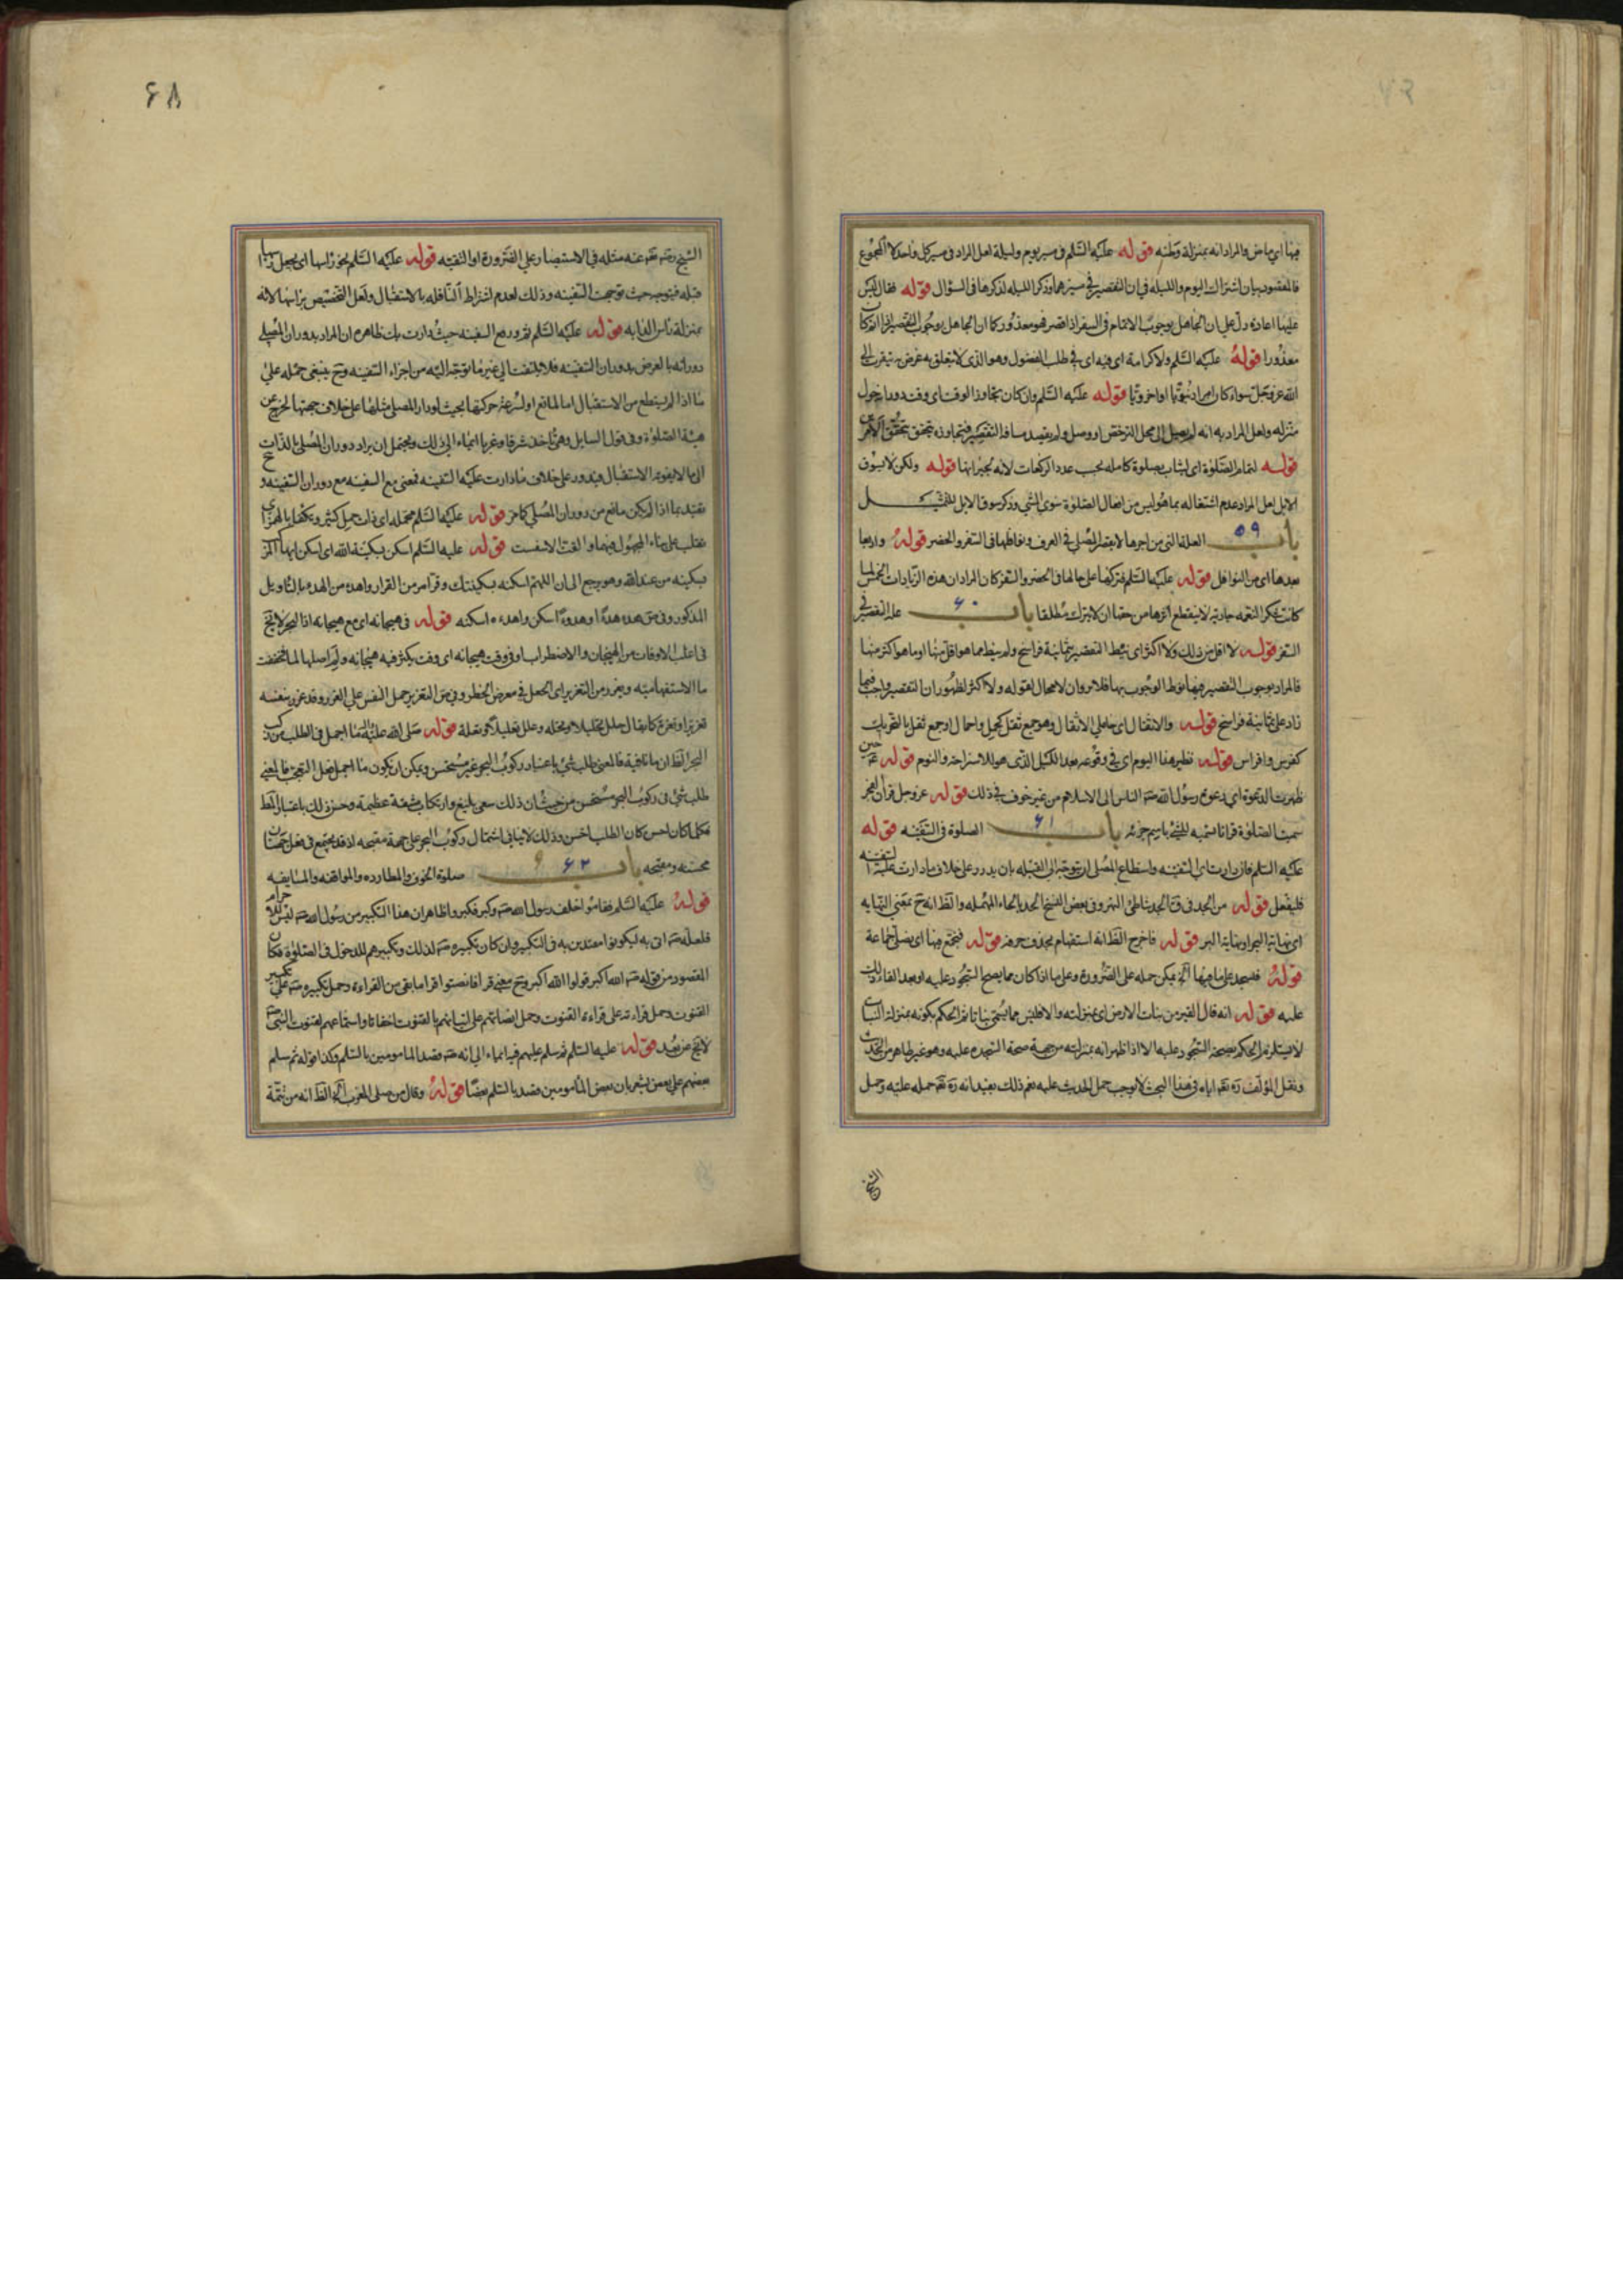 فيها اي ماض والمراد انه بمنزلة وطنه قوله عليه السلم في مسير يوم وليلة لعل المراد في مسير كل واحد لا المجموع
فالمقصود بيان اشتراك اليوم والليلة في ان التقصير في سيرهما وذكر الليله لذكرها في السؤال قوله فقال ليس
عليها اعاده دل على ان الجاهل بوجوب الاتمام في السفر اذا قصر فهو معذور كما ان الجاهل بوجوب التقصير اذا اتم كان
معذورا قوله عليه السلم ولا كرامة اي فيه اي في طلب الفضول وهو الذي لا يتعلق به غرض يتقرب الى
الله عز وجل سواء كان امرا دنيويا او اخرويا قوله عليه السلم وان كان تجاوز الوقت اي وقت دخول
منزله ولعل المراد به انه لم يصل الى محل الترخص او وصل ولم يقصد مسافة التقصير
قوله لتمام الصلوة اي ليثاب بصلوة كامله بحسب عدد الركعات لانه يجبر بها قوله ولكن لا يسوق
الابل لعل المراد عدم اشتغاله بما هو ليس من افعال الصلوة سوى المشي وذكر سوق الابل للتمثيل
باب ۵۹ العلة التي من اجلها لا يقصر المصلي في المغرب ونوافلها في السفر والحضر قوله واربعا
بعدها اي من النوافل قوله عليه السلم فتركها على حالها في الحضر والسفر كان المراد ان هذه الزيادات الخمس لما
كانت شكر النعمه جارية لا ينقطع اثرها من حقها ان لا يترك مطلقا باب ۶۰ علة التقصير في
السفر قوله لا اقل من ذلك ولا اكثر اي نيط التقصير بثمانية فراسخ ولم ينط بما هو اقل منها او ما هو اكثر منها
فالمراد بوجوب التقصير فيها نوط الوجوب بها فلا يرد ان لا مجال لقوله ولا اكثر لظهور ان التقصير واجب فيما
زاد على ثمانية فراسخ قوله والاثقال اي حاملي الاثقال وهو جمع ثقل كحمل واحمال او جمع ثقل بالتحريك
كفرس وافراس قوله نظير هذا اليوم اي في وقوعه بعد الليل الذي هو للاستراحة والنوم قوله حين
ظهرت الدعوة اي دعوة رسول الله الناس الى الاسلام من غير خوف في ذلك قوله عز وجل قرآن الفجر
سميت الصلوة قرانا تسمية للشئ باسم جزئه باب ۶۱ الصلوة في السفينه قوله
عليه السلم فان دارت اي السفينه واستطاع المصلي ان يتوجه الى القبله بان يدور على خلاف ما دارت عليه السفينه
فليفعل قوله من الجد في ق الجد شاطئ النهر وفي بعض النسخ الحد بالحاء المهمله والظ انه ح بمعنى النهايه
اي نهاية البحر او نهاية البر قوله فاخرج الظ انه استفهام بحذف حرفه قوله فنجتمع فيها اي نصلي جماعة
قوله فنسجد على ما فيها الخ يمكن حمله على الضرورة وعلى ما اذا كان مما يصح السجود عليه او بعد القاء ذلك
عليه قوله انه قال القير من نبات الارض اي بمنزلته والا فليس مما يسمى نباتا ثم الحكم بكونه بمنزلة النبات
لا يستلزم الحكم بصحة السجود عليه الا اذا ظهر انه بمنزلته من جهة صحة السجده عليه وهو غير ظاهر من الحديث
ونقل المؤلف ره اياه في هذا البحث لا يوجب حمل الحديث عليه نعم ذلك بعيد انه ره حمله عليه وحمل
الشيخ
۶۸
الشيخ رضي الله عنه مثله في الاستبصار على الضرورة او التقيه قوله عليه السلم نحو راسها اي يجعل راسها
قبله فيتوجه حيث توجهت السفينه وذلك لعدم اشتراط النافله بالاستقبال ولعل التخصيص براسها لانه
بمنزلة راس الدابه قوله عليه السلم ثم در مع السفينه حيث دارت بك ظاهره ان المراد بدوران المصلي
دورانه بالعرض بدوران السفينه فلا يلتفت الى غير ما توجه اليه من اجزاء السفينه وح ينبغي حمله على
ما اذا لم يستطع من الاستقبال اما لمانع او لسرعة حركتها بحيث لو دار المصلي مثلها على خلاف جهتها لخرج عن
هيئة الصلوة وفي قول السايل وهي تاخذ شرقا وغربا ايماء الى ذلك ويحتمل ان يراد دوران المصلي بالذات
الى ما لا يفوته الاستقبال فيدور على خلاف ما دارت عليه السفينه فمعنى مع السفينه مع دوران السفينه و
تقيد بما اذا لم يكن مانع من دوران المصلي كما مر قوله عليه السلم محمله اي ذات حمل كثير وتكفأ بالهمز اي
تقلب على بناء المجهول فيهما والغت الانفست قوله عليه السلم اسكن بسكينة الله اي اسكن ايها البحر
بسكينه من عند الله وهو يرجع الى ان اللهم اسكنه بسكينتك وقر امر من القرار واهدء من الهدء بالتاويل
المذكور وفي ص هدء هدءا وهدوءا سكن واهدءه اسكنه قوله في هيجانه اي مع هيجانه اذا البحر لا يخ
في اغلب الاوقات من الهيجان والاضطراب او في وقت هيجانه اي وقت يكثر فيه هيجانه ولم اصلها لما فخففت
ما الاستفهاميه ويغرر من التغرير اي الحمل في معرض الخطر وفي ص التغرير حمل النفس على الغرر وقد غرر بنفسه
تغريرا وتغرة كما يقال حلل تحليلا وتحله وعلل تعليلا وتعلة قوله صلى الله عليه واله ما اجمل في الطلب من ركب
البحر الظ ان ما نافية فالمعنى طلب شئ باعتبار ركوب البحر غير مستحسن ويمكن ان يكون ما اجمل فعل التعجب فالمعنى
طلب شئ في ركوب البحر مستحسن من حيث ان ذلك سعى بليغ وارتكاب مشقة عظيمة وحسن ذلك باعتبار الطلب
فكلما كان احسن كان الطلب احسن وذلك لا ينافي اشتمال ركوب البحر على جهة مقبحه اذ قد يجتمع في فعل جهتان
محسنه ومقبحه باب ۶۲ صلوة الخوف والمطارده والمواقفه والمسايفه
قوله عليه السلم فقاموا خلف رسول الله فكبر وكبروا ظاهر ان هذا التكبير من رسول الله ليس للاحرام
فلعله اتى به ليكونوا مقتدين به في التكبير وان كان تكبيره لذلك وتكبيرهم للدخول في الصلوة فكان
المقصود من قوله الله اكبر قولوا الله اكبر وح معنى قرا فانصتوا قرا ما بقي من القراءه وحمل تكبيره على تكبير
القنوت وحمل قراءته على قراءة القنوت وحمل انصاتهم على اتيانهم بالقنوت اخفاتا واستماعهم لقنوت النبي
لا يخ عن بعد قوله عليه السلم ثم سلم عليهم فيه ايماء الى انه قصد المامومين بالسلم وكذا قوله ثم سلم
بعضهم على بعض يشعر بان بعض المأمومين قصد بالسلم بعضا قوله وقال من صلى المغرب الخ الظ انه من تتمة